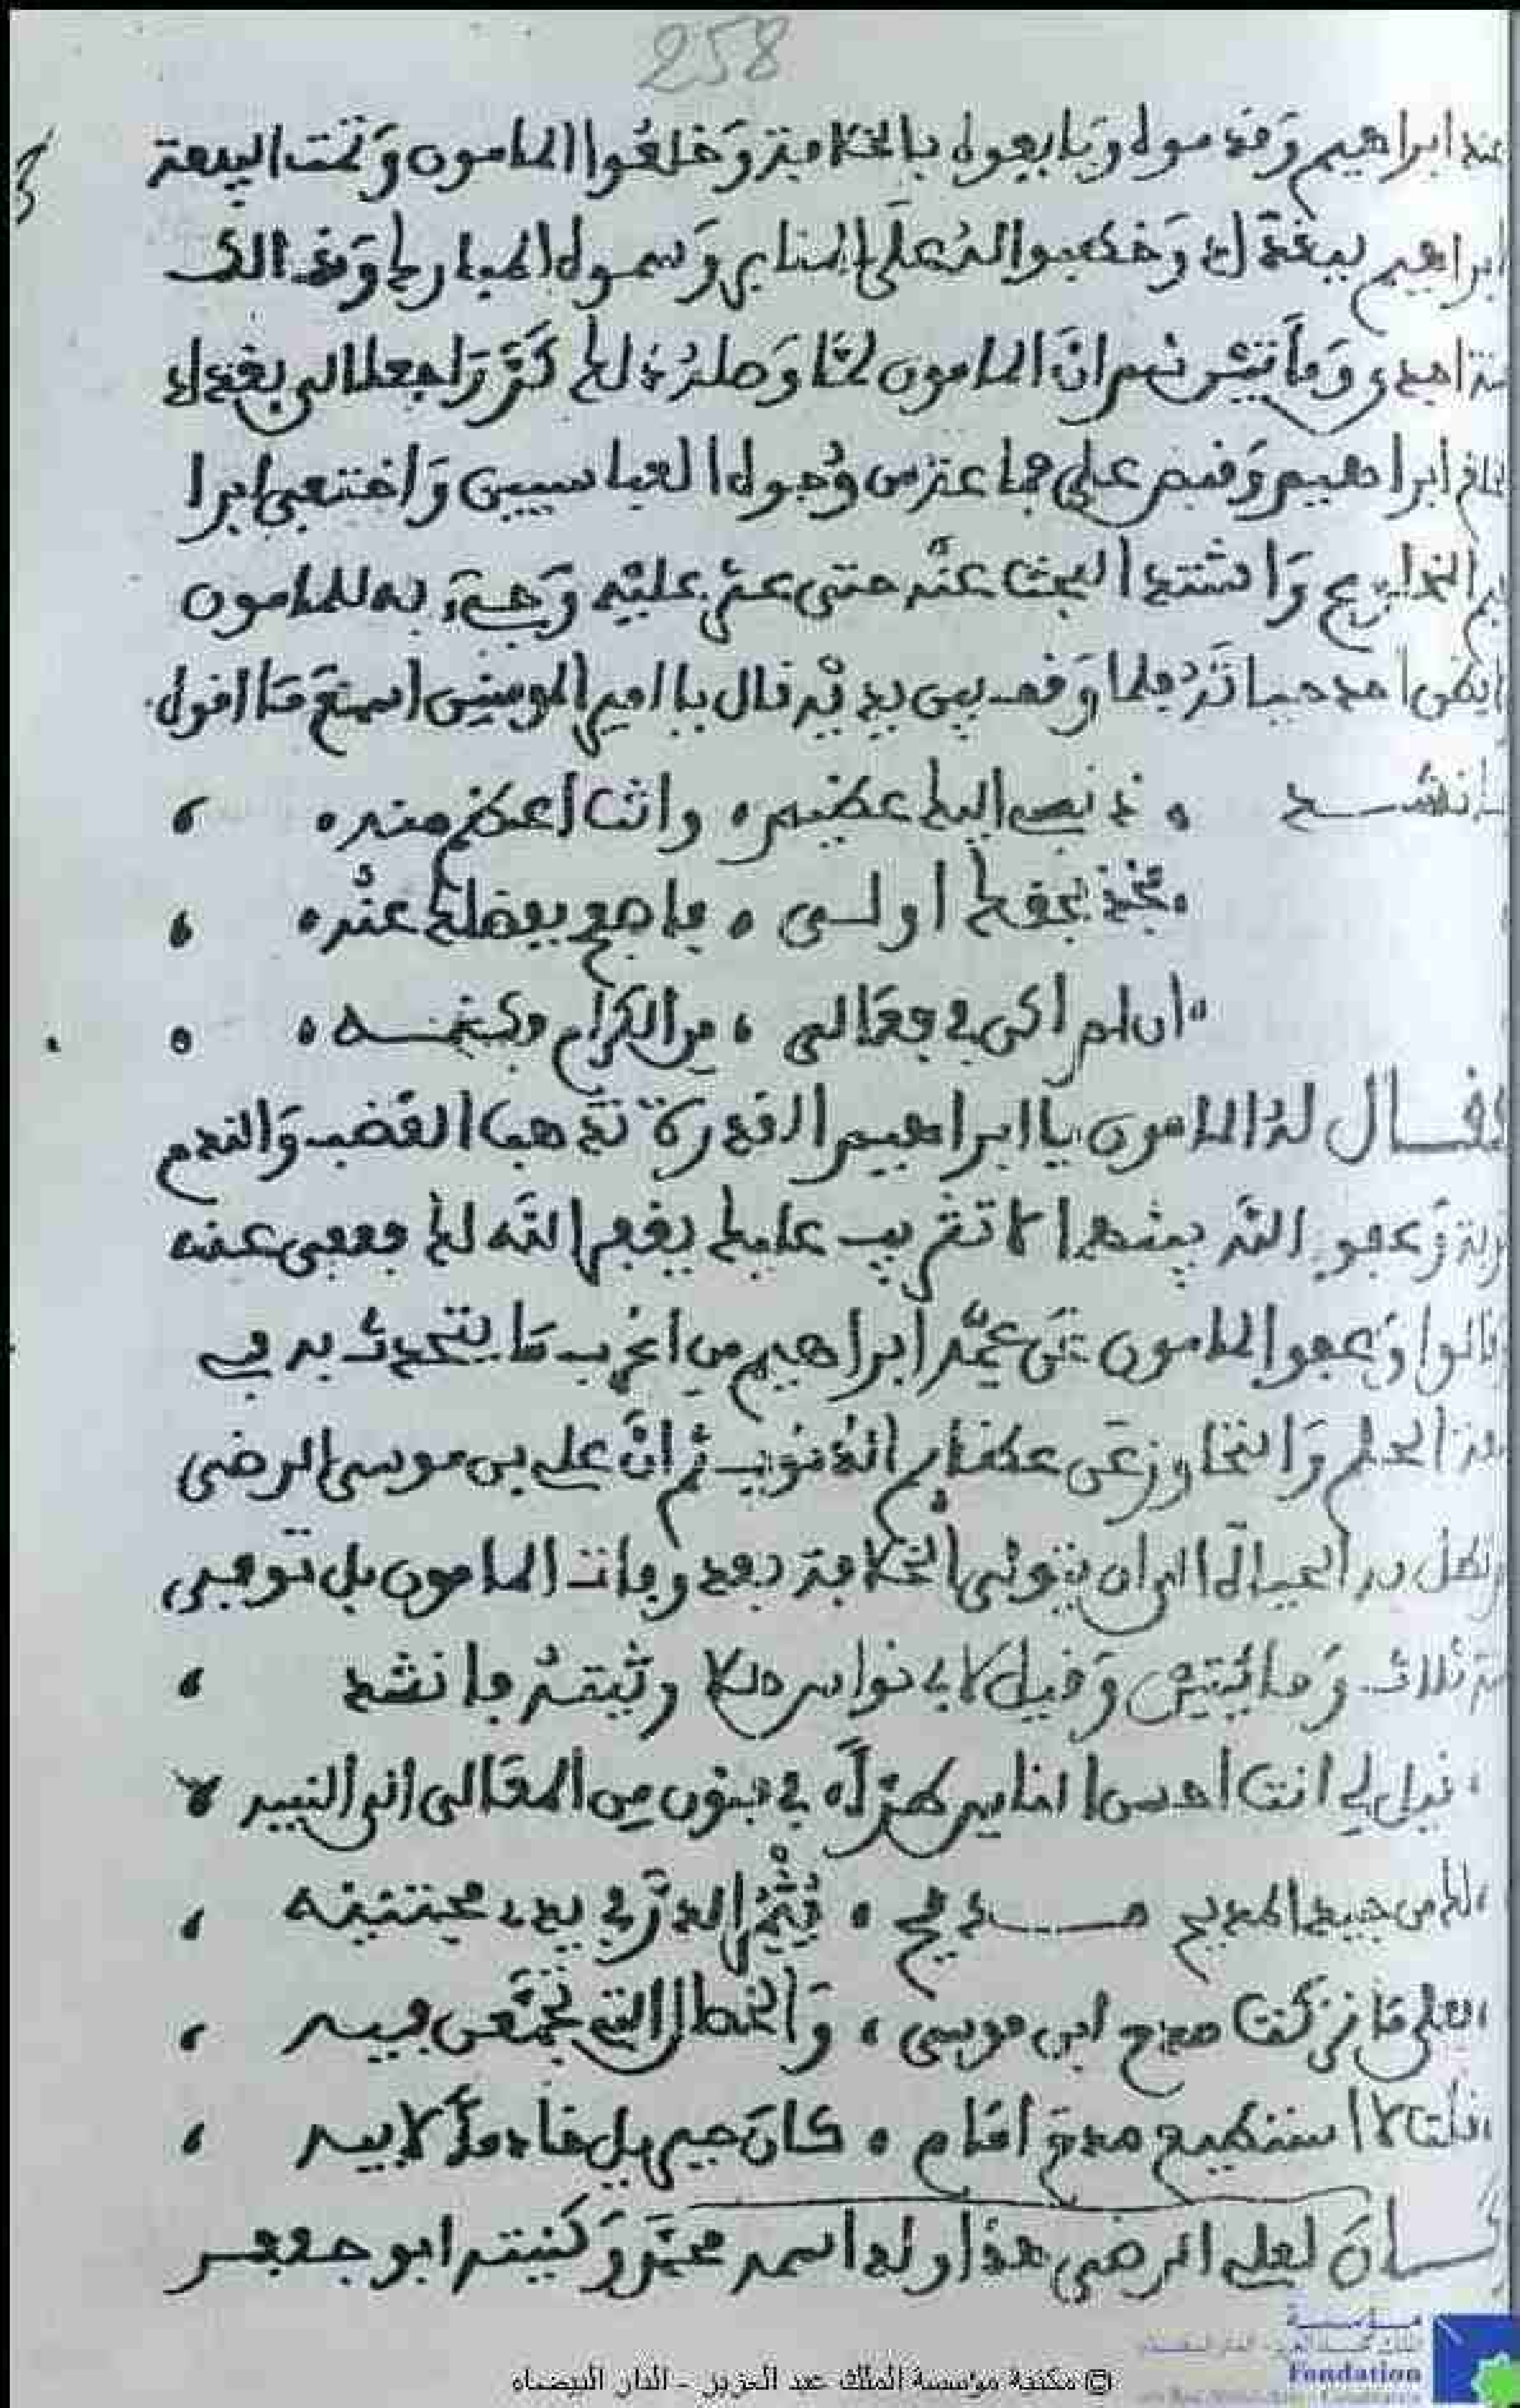 258
عند ابراهيم وقدموه وبايعوه بالخلافة وخلعوا المامون وتمت البيعة
ابراهيم ببغداد وخطبوا له على المنابر وسموه المبارك وذالك
احدى ومأتين ثم ان المامون لما وصله ذلك كر راجعا الى بغداد
ابراهيم وقبض على جماعة من وجوه العباسيين واختفى ابرا
واشتد البحث عنه حتى عثر عليه وجيء به للمامون
فلما وقف بين يديه قال يا امير المومنين اسمع ما اقول
انشد ، ذنبي اليك عظيم ، وانت اعظم منه ،
، فخذ بحقك اولى ، فاصفح بفضلك عنه ،
، ان لم اكن في فعالي ، من الكرام فكنه ،
فقال له المامون يا ابراهيم القدرة تذهب الغضب والندم
توبة وعفو الله بينهما لا تثريب عليك يغفر الله لك فعفى عنه
قالوا وعفو المامون عن عمه ابراهيم من اغرب ما يتحدث به في
الحلم والتجاوز عن عظائم الذنوب ثم ان علي بن موسى الرضى
تطل به الحياة الى ان يتولى الخلافة بعد وفات المامون بل توفى
ثلاث ومايتين وقيل لابي نواس هلا رثيته فانشد ،
، قيل لي انت احسن الناس طرا ، في فنون من المقال النبيه
، لك من جيد المديح مديح ، يثمر الدر في يدي مجتنيه ،
، فعلى ما تركت مدح ابن موسى ، والخصال التي تجمعن فيه ،
، قلت لا استطيع مدح امام ، كان جبريل خادما لابيه ،
كان لعلي الرضى هذا ولد اسمه محمد وكنيته ابو جعفر
مؤسسة
Fondation
© مكتبة مؤسسة الملك عبد العزيز - الدار البيضاء